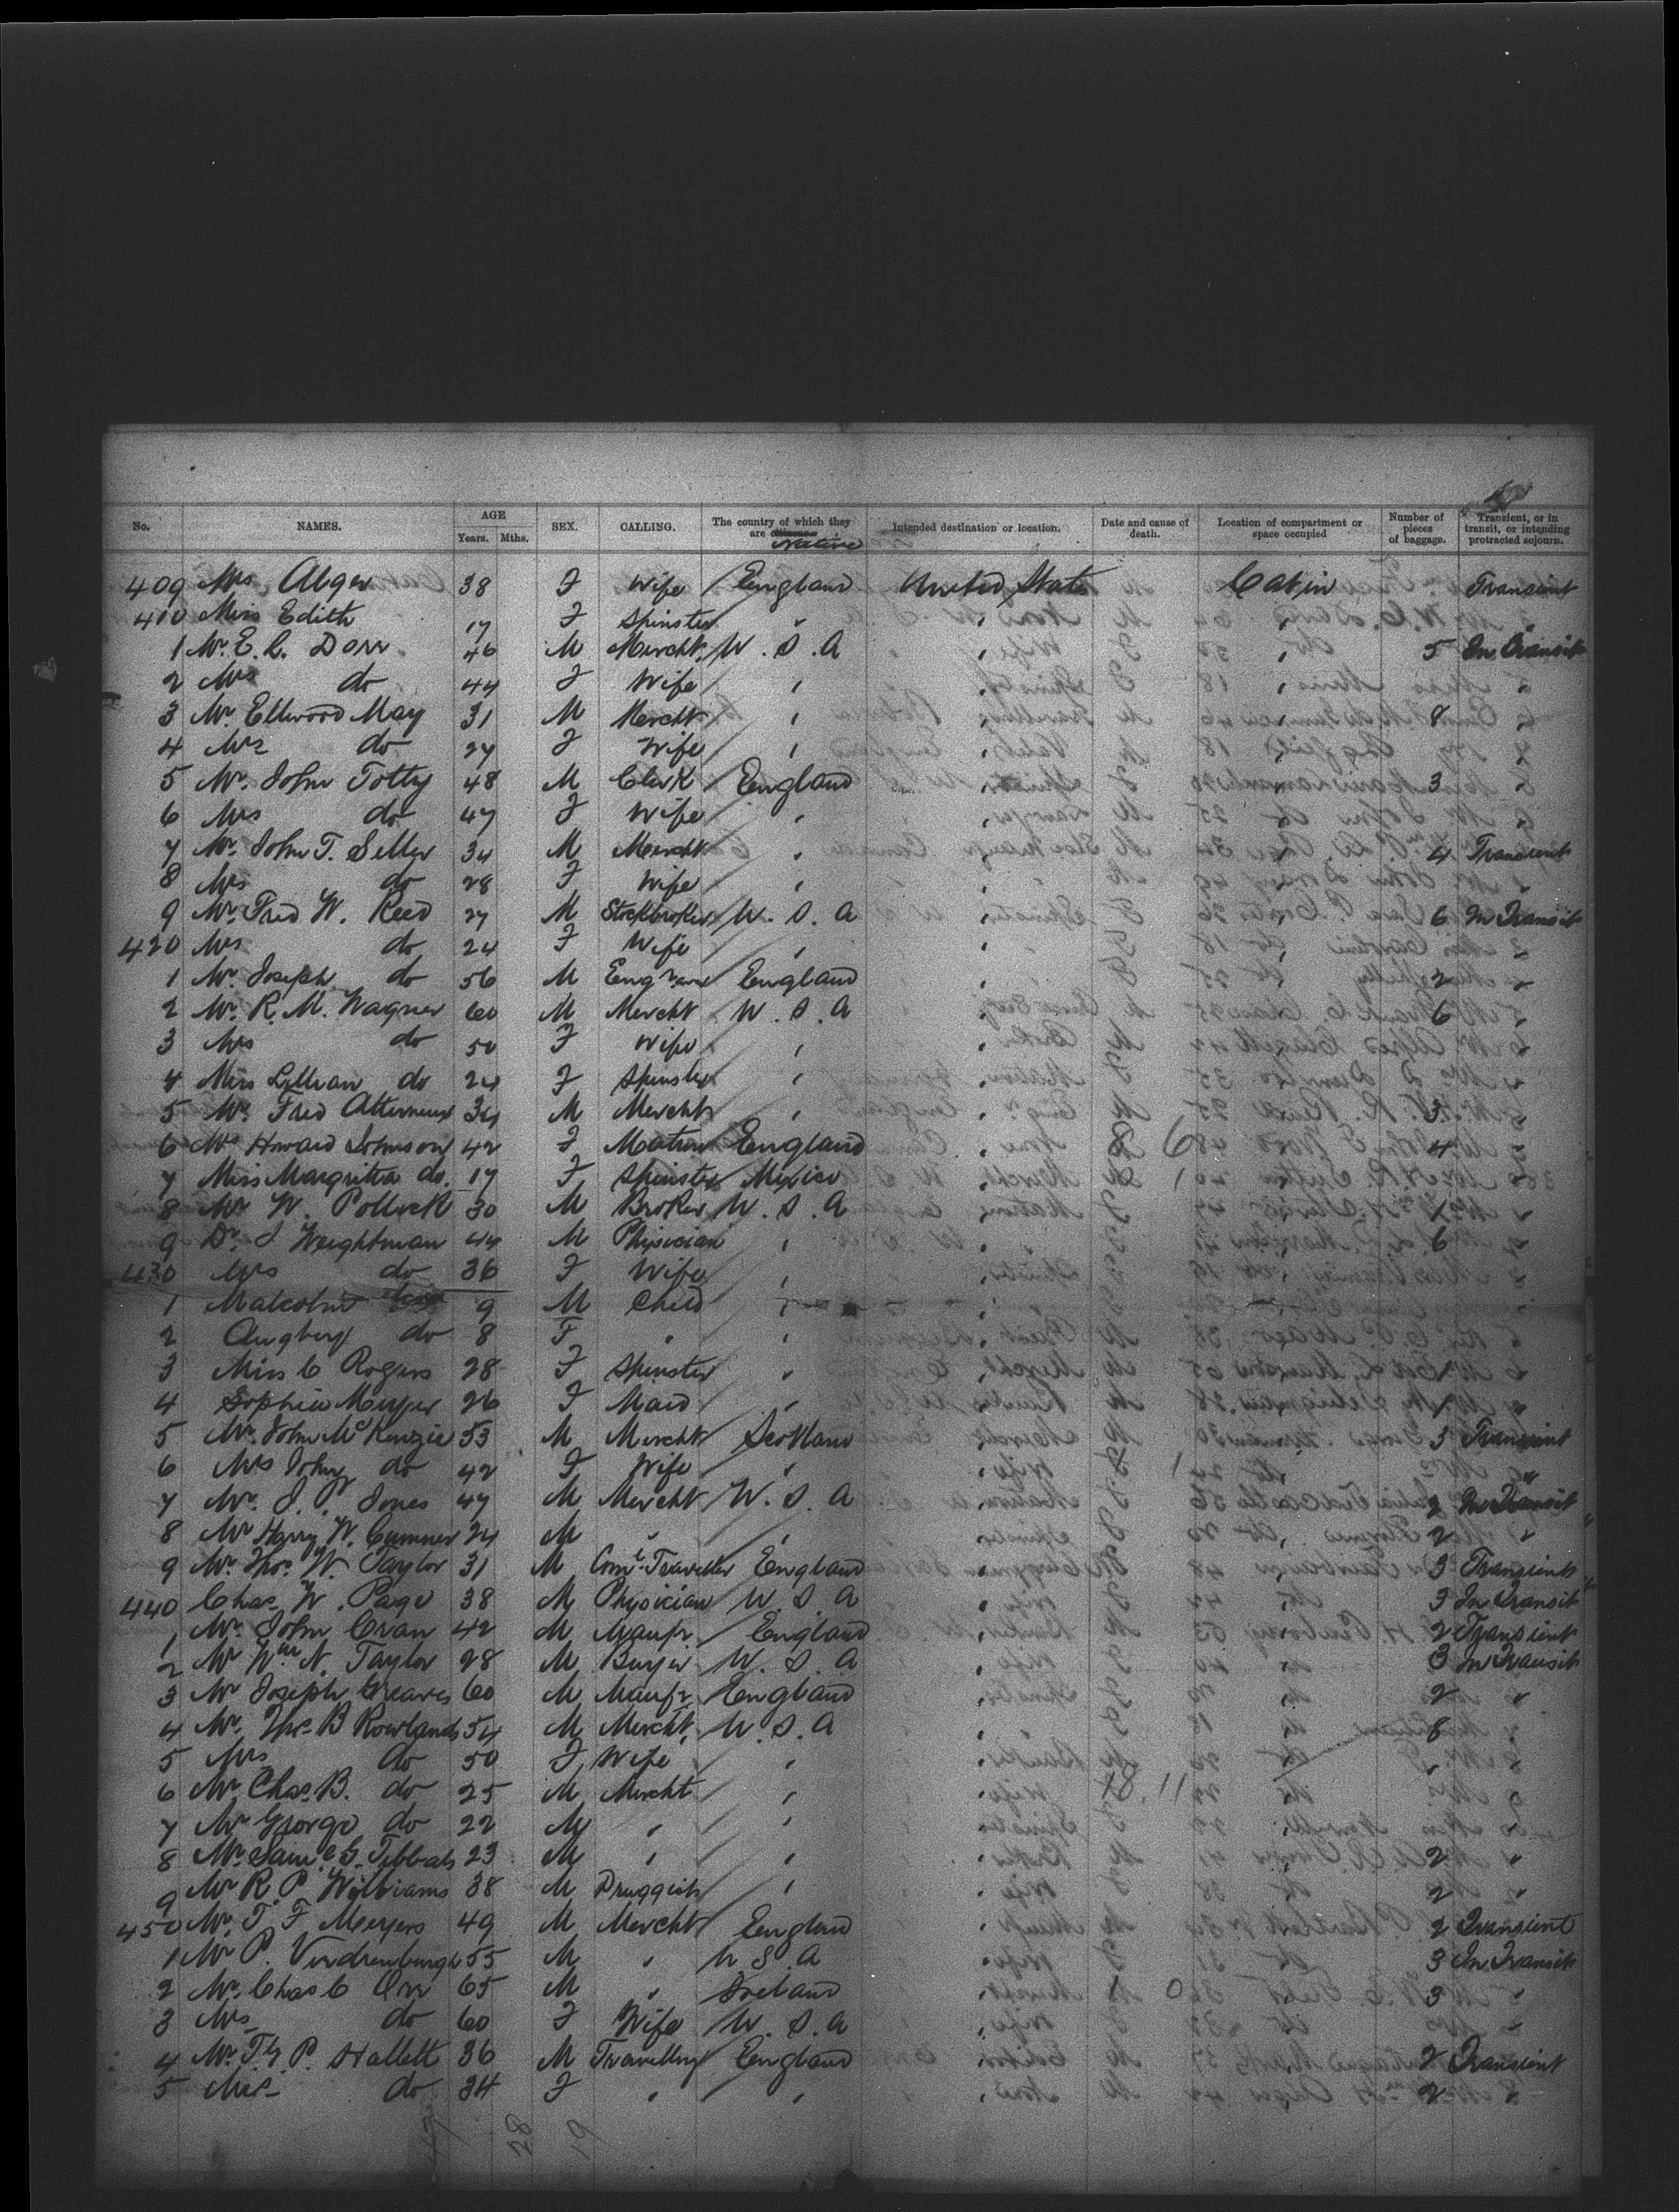 No. NAMES. AGE Years. Mths. SEX. CALLING. The country of which they are Native Intended destination or location. Date and cause of death. Location of compartment or space occupied Number of pieces of baggage. Transient, or in transit, or intending protracted sojourn.
409 Mrs Alger 38 F Wife England United States Cabin Transient
410 Miss Edith 17 F Spinster " " " "
1 Mr. E. C. Dorr 46 M Mercht. U. S. A " " 5 In Transit
2 Mrs do 44 F Wife " "
3 Mr. Ellwood May 31 M Mercht " " 8 "
4 Mrs do 27 F Wife " "
5 Mr. John Totty 48 M Clerk England " 3 "
6 Mrs do 47 F Wife " "
7 Mr. John T. Seller 34 M Mercht " " 4 Transient
8 Mrs do 28 F Wife " "
9 Mr. Fred W. Reed 27 M Stockbroker U. S. A " 6 In Transit
420 Mrs do 24 F Wife " "
1 Mr. Joseph do 56 M England " 2 "
2 Mr. R. M. Wagner 60 M Mercht U. S. A " 6 "
3 Mrs do 50 F Wife " "
4 Miss Lillian do 24 F Spinster " "
5 Mr. Fred 34 M Mercht " " 3 "
6 Mrs Howard Johnson 42 F Matron England " 4 "
7 Miss Margritta do. 17 F Spinster Mexico "
8 Mr W. Pollock 30 M Broker U. S. A " 1 "
9 Dr. J Weightman 44 M Physician " " 6 "
430 Mrs do 36 F Wife " "
1 Malcolm 9 M Child " "
2 do 8 F " " "
3 Miss C Rogers 28 F Spinster " "
4 Sophie Meyer 26 F Maid " " "
5 Mr. John McKenzie 53 M Mercht Scotland " 3 Transient
6 Mrs John do 42 F Wife " " "
7 Mr. J. P. Jones 47 M Mercht U. S. A " 2 In Transit
8 Mr Harry W. Cumner 24 M " " " 2 "
9 Mr. Thos. W. Taylor 31 M Coml. Traveller England " 3 Transient
440 Chas. W. Page 38 M Physician U. S. A " 3 In Transit
1 Mr. John Cran 42 M Maufr. England " 2 Transient
2 Mr Wm N. Taylor 28 M Buyer U. S. A " 3 In Transit
3 Mr Joseph Greaves 60 M Maufr. England " 2 "
4 Mr. Thos. B Rowlands 54 M Mercht. U. S. A " 8 "
5 Mrs do 50 F Wife " " "
6 Mr Chas. B. do 25 M Mercht " "
7 Mr George do 22 M " " "
8 Mr. Saml. G. Tibbals 23 M " " " 2 "
9 Mr R. P. Williams 38 M Druggist " " 2 "
450 Mr. T. F. Meyers 49 M Mercht England " 2 Transient
1 Mr P. Vredenburgh 55 M " U. S. A " 3 In Transit
2 Mr. Chas C Orr 65 M " Ireland " 3 "
3 Mrs do 60 F Wife U. S. A " "
4 Mr. P. Hallett 36 M Travelling England " 2 Transient
5 Mrs do 34 F " " " 2 "
28 19